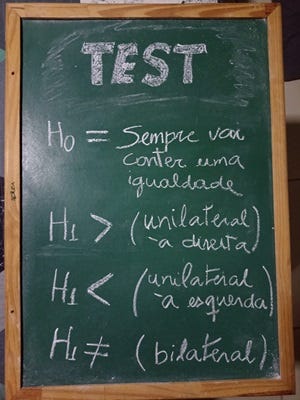 TEST
H₀ = Sempre vai
conter uma
igualdade
H₁ > (unilateral
à direita)
H₁ < (unilateral
à esquerda)
H₁ ≠ (bilateral)